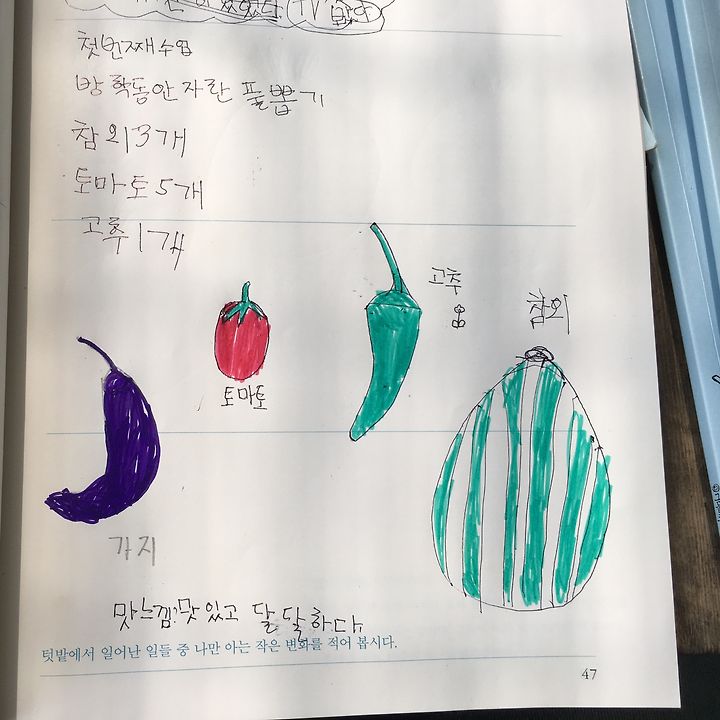 첫번째수업
방학동안자란 풀뽑기
참외3개
토마토5개
고추1개
고추
참외
토마토
가지
맛느낌:맛있고 달달하다.
텃밭에서 일어난 일들 중 나만 아는 작은 변화를 적어 봅시다.
47